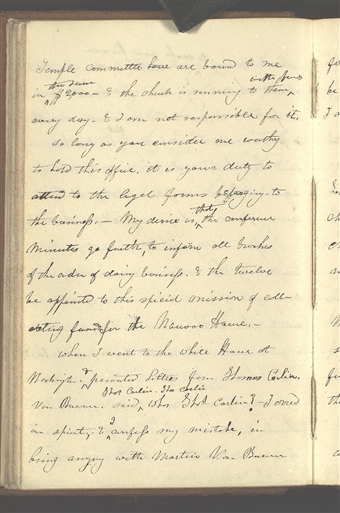 Temple committee have are bound to me
the sum
in $2,000 — & the church is running to them
every day — & I am not responsible for it.
So long as you consider me worthy
to hold this office, it is your duty to
attend to the legal forms belonging to
the business. — My desire is, that the conference
minutes go forth, to inform all branches
of the order of doing business. & the twelve
be appointed to this special mission of coll-
ecting funds for the Nauvoo House. —
When I went to the White House at
Washington & presented letters from Thomas Carlin
Thos Carlin
Van Buren said, Who Thos Carlin? — I erred
in spirit, & I confess my mistake, in
being angry with Martin Van Buren